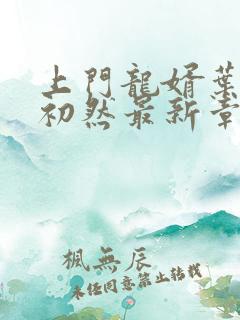 上門龍婿葉
初然最新章
楓無辰
未經同意禁止轉載